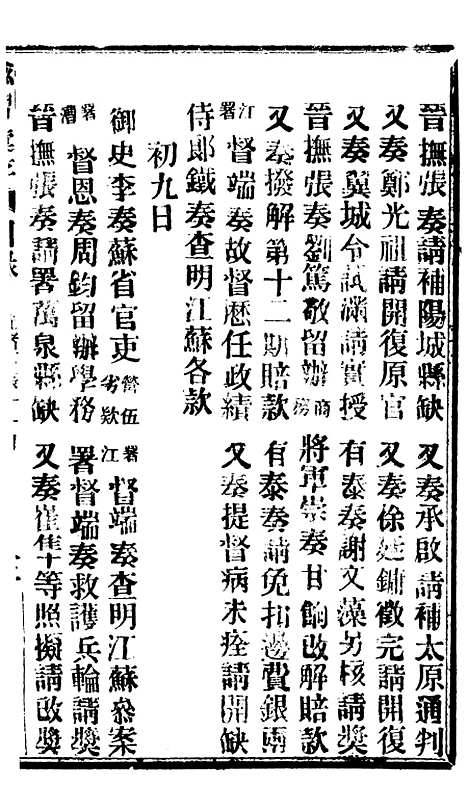 晉撫張奏請補陽城縣缺　又奏承啟請補太原通判
又奏鄭光祖請開復原官　又奏徐延鏞徵完請開復
又奏翼城令試滿請實授　有泰奏謝文藻另核請獎
晉撫張奏劉篤敬留辦商務　將軍崇奏甘餉改解賠款
又奏撥解第十二期賠款　有泰奏請免扣邊費銀兩
署江督端奏故督歷任政績　又奏提督病未痊請開缺
侍郎鐵奏查明江蘇各款
初九日
御史李奏蘇省官吏營伍劣款　署江督端奏查明江蘇參案
署漕督恩奏周鈞留辦學務　署督端奏救護兵輪請獎
晉撫張奏請署萬泉縣缺　又奏崔隼等照擬請改獎